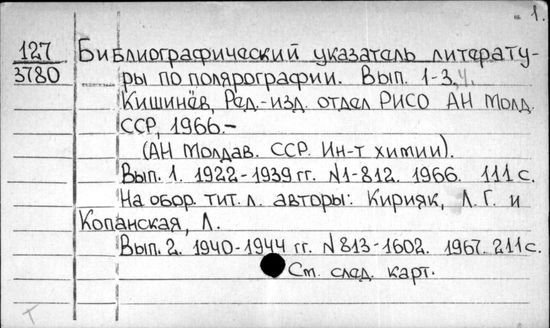 1.
127
3780
Библиографический указатель литерату-
ры по полярографии. Вып. 1-3,4.
Кишинёв, Ред.-изд. отдел РИСО АН Молд.
ССР, 1966.-
(АН Молдав. ССР. Ин-т химии).
Вып. 1. 1922-1939 гг. N1-812. 1966. 111 с.
На обор. тит. л. авторы: Кирияк, Л. Г. и
Копанская, Л.
Вып. 2. 1940-1944 гг. N 813-1602. 1967. 211 с.
См. след. карт.
Т